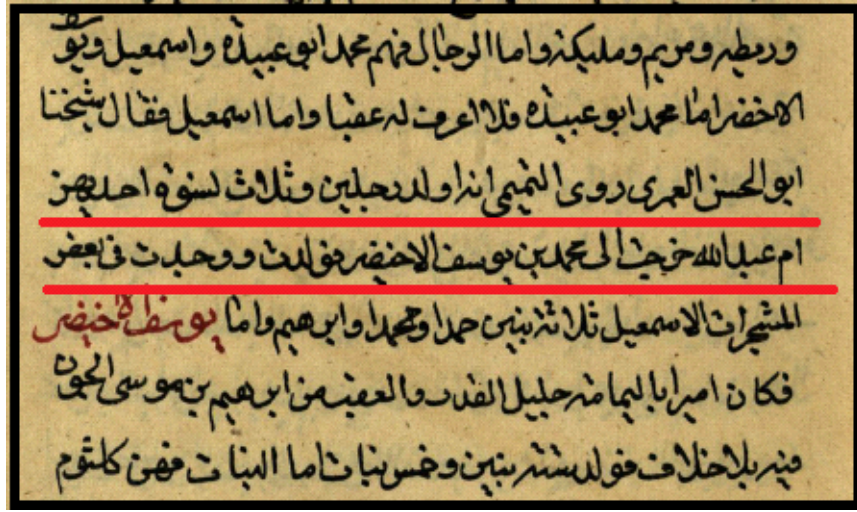 وريطه ومريم ومليكة واما الرجال فهم محمد ابو عبيدة واسمعيل ويوسف
الاخضر اما محمد ابو عبيدة فلا اعرف له عقبا واما اسمعيل فقال شيخنا
ابو الحسن العمرى روى التميمى انه اولد رجلين وثلاث نسوة احديهن
ام عبد الله خرجت الى محمد بن يوسف الاخيضر فولدت ووجدت فى بعض
المشجرات لاسمعيل ثلاثة بنين حمدا ومحمدا وابرهيم واما يوسف الاخيضر
فكان اميرا باليمامة جليل القدر والعقب من ابرهيم بن موسى الجون
فيه بلا خلاف فولد ستة بنين وخمس بنات اما البنات فهن كلثوم